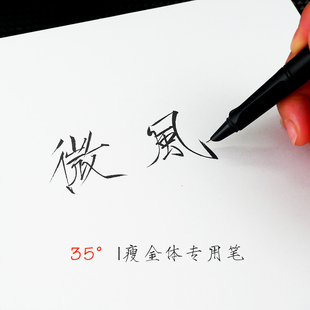 微風
35° 1瘦金体专用笔